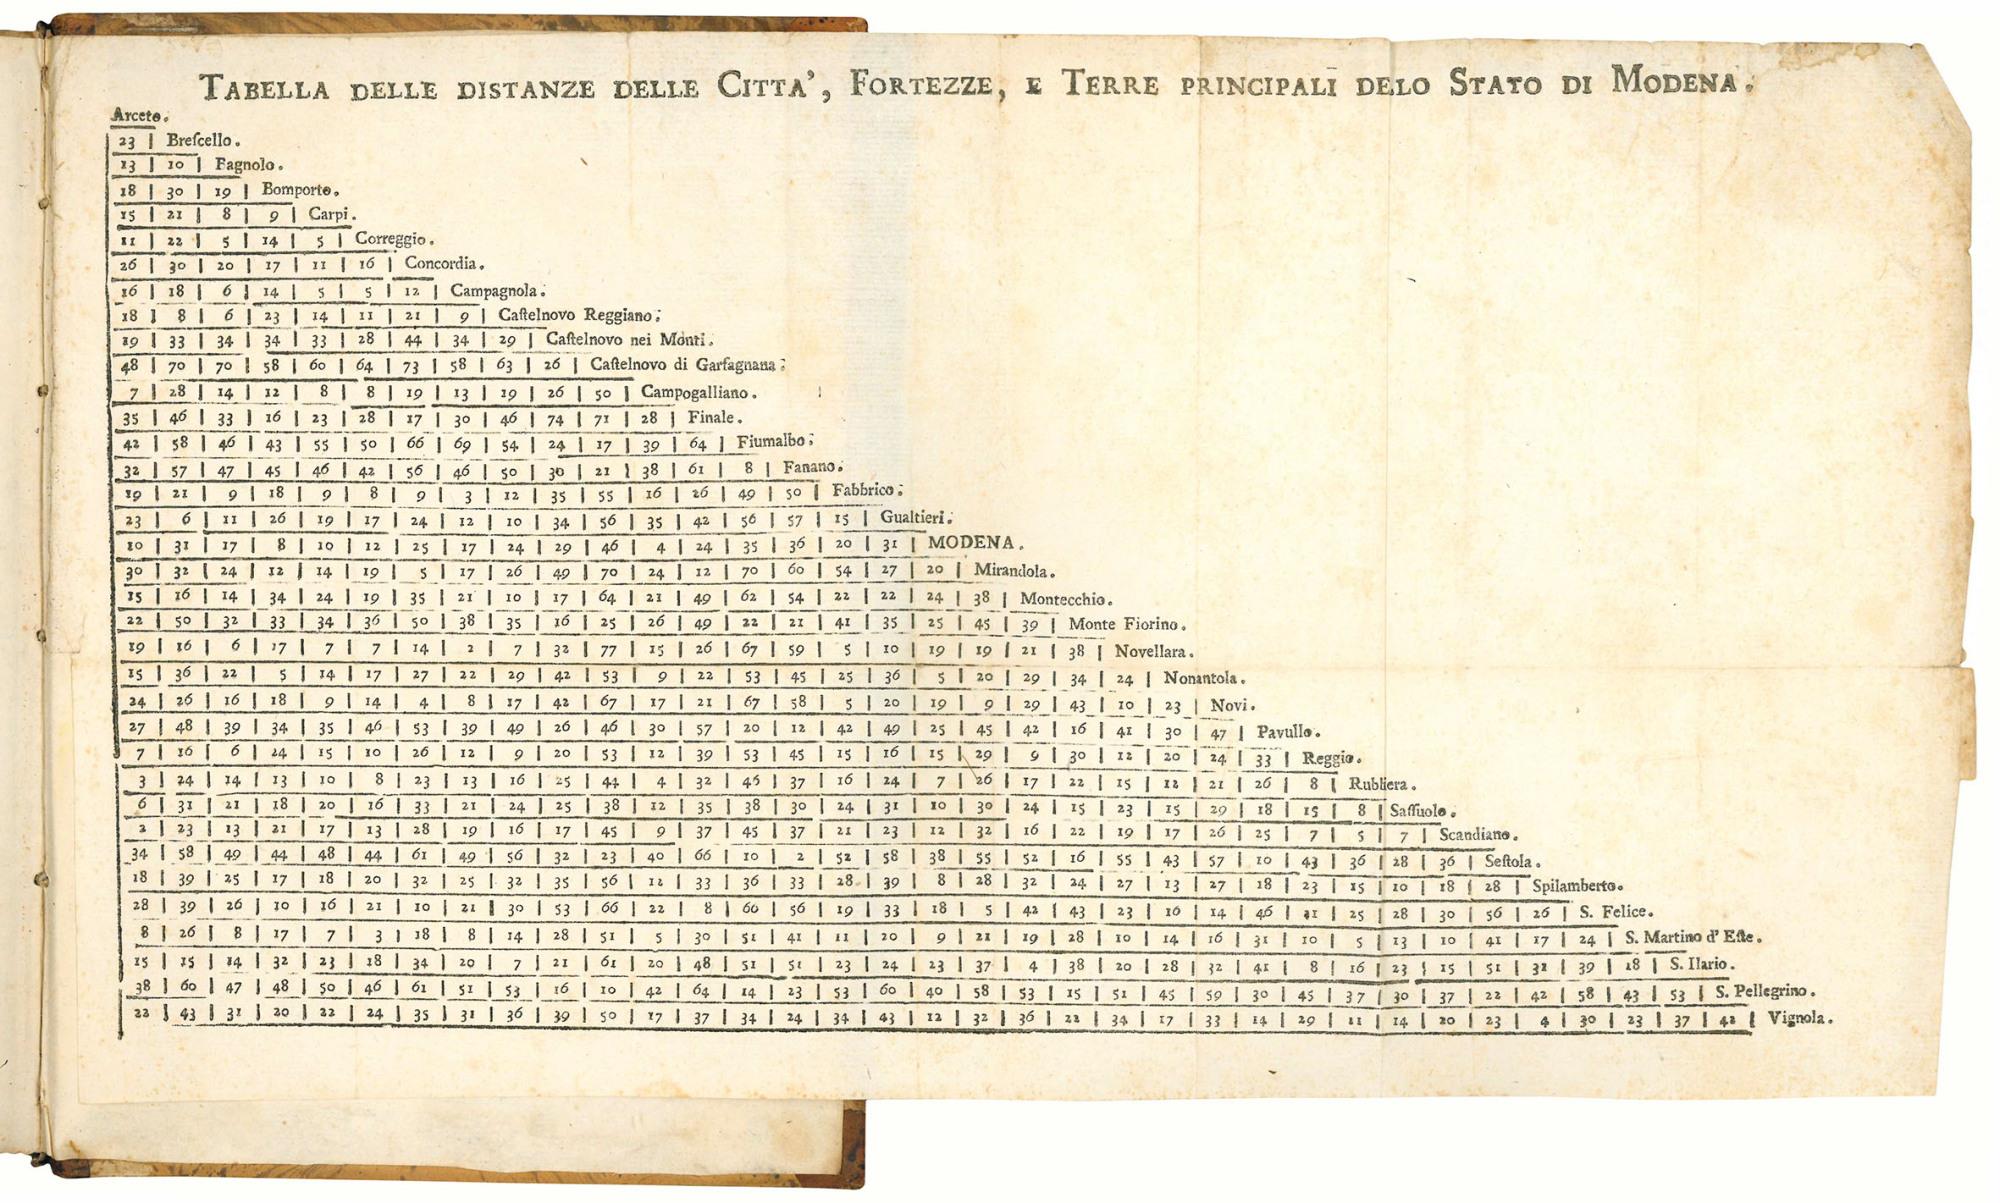 TABELLA DELLE DISTANZE DELLE CITTA', FORTEZZE, E TERRE PRINCIPALI DELO STATO DI MODENA.
Arceto.
23 | Breſcello.
13 | 10 | Fagnolo.
18 | 30 | 19 | Bomporto.
15 | 21 | 8 | 9 | Carpi.
11 | 22 | 5 | 14 | 5 | Correggio.
26 | 30 | 20 | 17 | 11 | 16 | Concordia.
16 | 18 | 6 | 14 | 5 | 5 | 12 | Campagnola.
18 | 8 | 6 | 23 | 14 | 11 | 21 | 9 | Caſtelnovo Reggiano.
19 | 33 | 34 | 34 | 33 | 28 | 44 | 34 | 29 | Caſtelnovo nei Monti.
48 | 70 | 70 | 58 | 60 | 64 | 73 | 58 | 63 | 26 | Caſtelnovo di Garfagnana.
7 | 28 | 14 | 12 | 8 | 8 | 19 | 13 | 19 | 26 | 50 | Campogalliano.
35 | 46 | 33 | 16 | 23 | 28 | 17 | 30 | 46 | 74 | 71 | 28 | Finale.
42 | 58 | 46 | 43 | 55 | 50 | 66 | 69 | 54 | 24 | 17 | 39 | 64 | Fiumalbo.
32 | 57 | 47 | 45 | 46 | 42 | 56 | 46 | 50 | 30 | 21 | 38 | 61 | 8 | Fanano.
19 | 21 | 9 | 18 | 9 | 8 | 9 | 3 | 12 | 35 | 55 | 16 | 26 | 49 | 50 | Fabbrico.
23 | 6 | 11 | 26 | 19 | 17 | 24 | 12 | 10 | 34 | 56 | 35 | 42 | 56 | 57 | 15 | Gualtieri.
10 | 31 | 17 | 8 | 10 | 12 | 25 | 17 | 24 | 29 | 46 | 4 | 24 | 35 | 36 | 20 | 31 | MODENA.
30 | 32 | 24 | 12 | 14 | 19 | 5 | 17 | 26 | 49 | 70 | 24 | 12 | 70 | 60 | 54 | 27 | 20 | Mirandola.
15 | 16 | 14 | 34 | 24 | 19 | 35 | 21 | 10 | 17 | 64 | 21 | 49 | 62 | 54 | 22 | 22 | 24 | 38 | Montecchio.
22 | 50 | 32 | 33 | 34 | 36 | 50 | 38 | 35 | 16 | 25 | 26 | 49 | 22 | 21 | 41 | 35 | 25 | 45 | 39 | Monte Fiorino.
19 | 16 | 6 | 17 | 7 | 7 | 14 | 2 | 7 | 32 | 77 | 15 | 26 | 67 | 59 | 5 | 10 | 19 | 19 | 21 | 38 | Novellara.
15 | 36 | 22 | 5 | 14 | 17 | 27 | 22 | 29 | 42 | 53 | 9 | 22 | 53 | 45 | 25 | 36 | 5 | 20 | 29 | 34 | 24 | Nonantola.
24 | 26 | 16 | 18 | 9 | 14 | 4 | 8 | 17 | 42 | 67 | 17 | 21 | 67 | 58 | 5 | 20 | 19 | 9 | 29 | 43 | 10 | 23 | Novi.
27 | 48 | 39 | 34 | 35 | 46 | 53 | 39 | 49 | 26 | 46 | 30 | 57 | 20 | 12 | 42 | 49 | 25 | 45 | 42 | 16 | 41 | 30 | 47 | Pavullo.
7 | 16 | 6 | 24 | 15 | 10 | 26 | 12 | 9 | 20 | 53 | 12 | 39 | 53 | 45 | 15 | 16 | 15 | 29 | 9 | 30 | 12 | 20 | 24 | 33 | Reggio.
3 | 24 | 14 | 13 | 10 | 8 | 23 | 13 | 16 | 25 | 44 | 4 | 32 | 45 | 37 | 16 | 24 | 7 | 26 | 17 | 22 | 15 | 12 | 21 | 26 | 8 | Rubliera.
6 | 31 | 21 | 18 | 20 | 16 | 33 | 21 | 24 | 25 | 38 | 12 | 35 | 38 | 30 | 24 | 31 | 10 | 30 | 24 | 15 | 23 | 15 | 29 | 18 | 15 | 8 | Saſſuolo.
2 | 23 | 13 | 21 | 17 | 13 | 28 | 19 | 16 | 17 | 45 | 9 | 37 | 45 | 37 | 21 | 23 | 12 | 32 | 16 | 22 | 19 | 17 | 26 | 25 | 7 | 5 | 7 | Scandiano.
34 | 58 | 49 | 44 | 48 | 44 | 61 | 49 | 56 | 32 | 23 | 40 | 66 | 10 | 2 | 52 | 58 | 38 | 55 | 52 | 16 | 55 | 43 | 57 | 10 | 43 | 36 | 28 | 36 | Seſtola.
18 | 39 | 25 | 17 | 18 | 20 | 32 | 25 | 32 | 35 | 56 | 12 | 33 | 36 | 33 | 28 | 39 | 8 | 28 | 32 | 24 | 27 | 13 | 27 | 18 | 23 | 15 | 10 | 18 | 28 | Spilamberto.
28 | 39 | 26 | 10 | 16 | 21 | 10 | 21 | 30 | 53 | 66 | 22 | 8 | 60 | 56 | 19 | 33 | 18 | 5 | 42 | 43 | 23 | 16 | 14 | 46 | 31 | 25 | 28 | 30 | 56 | 26 | S. Felice.
8 | 26 | 8 | 17 | 7 | 3 | 18 | 8 | 14 | 28 | 51 | 5 | 30 | 51 | 41 | 11 | 20 | 9 | 21 | 19 | 28 | 10 | 14 | 16 | 31 | 10 | 5 | 13 | 10 | 41 | 17 | 24 | S. Martino d'Eſte.
15 | 15 | 14 | 32 | 23 | 18 | 34 | 20 | 7 | 21 | 61 | 20 | 48 | 51 | 51 | 23 | 24 | 23 | 37 | 4 | 38 | 20 | 28 | 32 | 41 | 8 | 16 | 23 | 15 | 51 | 32 | 39 | 18 | S. Ilario.
38 | 60 | 47 | 48 | 50 | 46 | 61 | 51 | 53 | 16 | 10 | 42 | 64 | 14 | 23 | 53 | 60 | 40 | 58 | 53 | 15 | 51 | 45 | 59 | 30 | 45 | 37 | 30 | 37 | 22 | 42 | 58 | 43 | 53 | S. Pellegrino.
22 | 43 | 31 | 20 | 22 | 24 | 35 | 31 | 36 | 39 | 50 | 17 | 37 | 34 | 24 | 34 | 43 | 12 | 32 | 36 | 22 | 34 | 17 | 33 | 14 | 29 | 11 | 14 | 20 | 23 | 4 | 30 | 23 | 37 | 42 | Vignola.